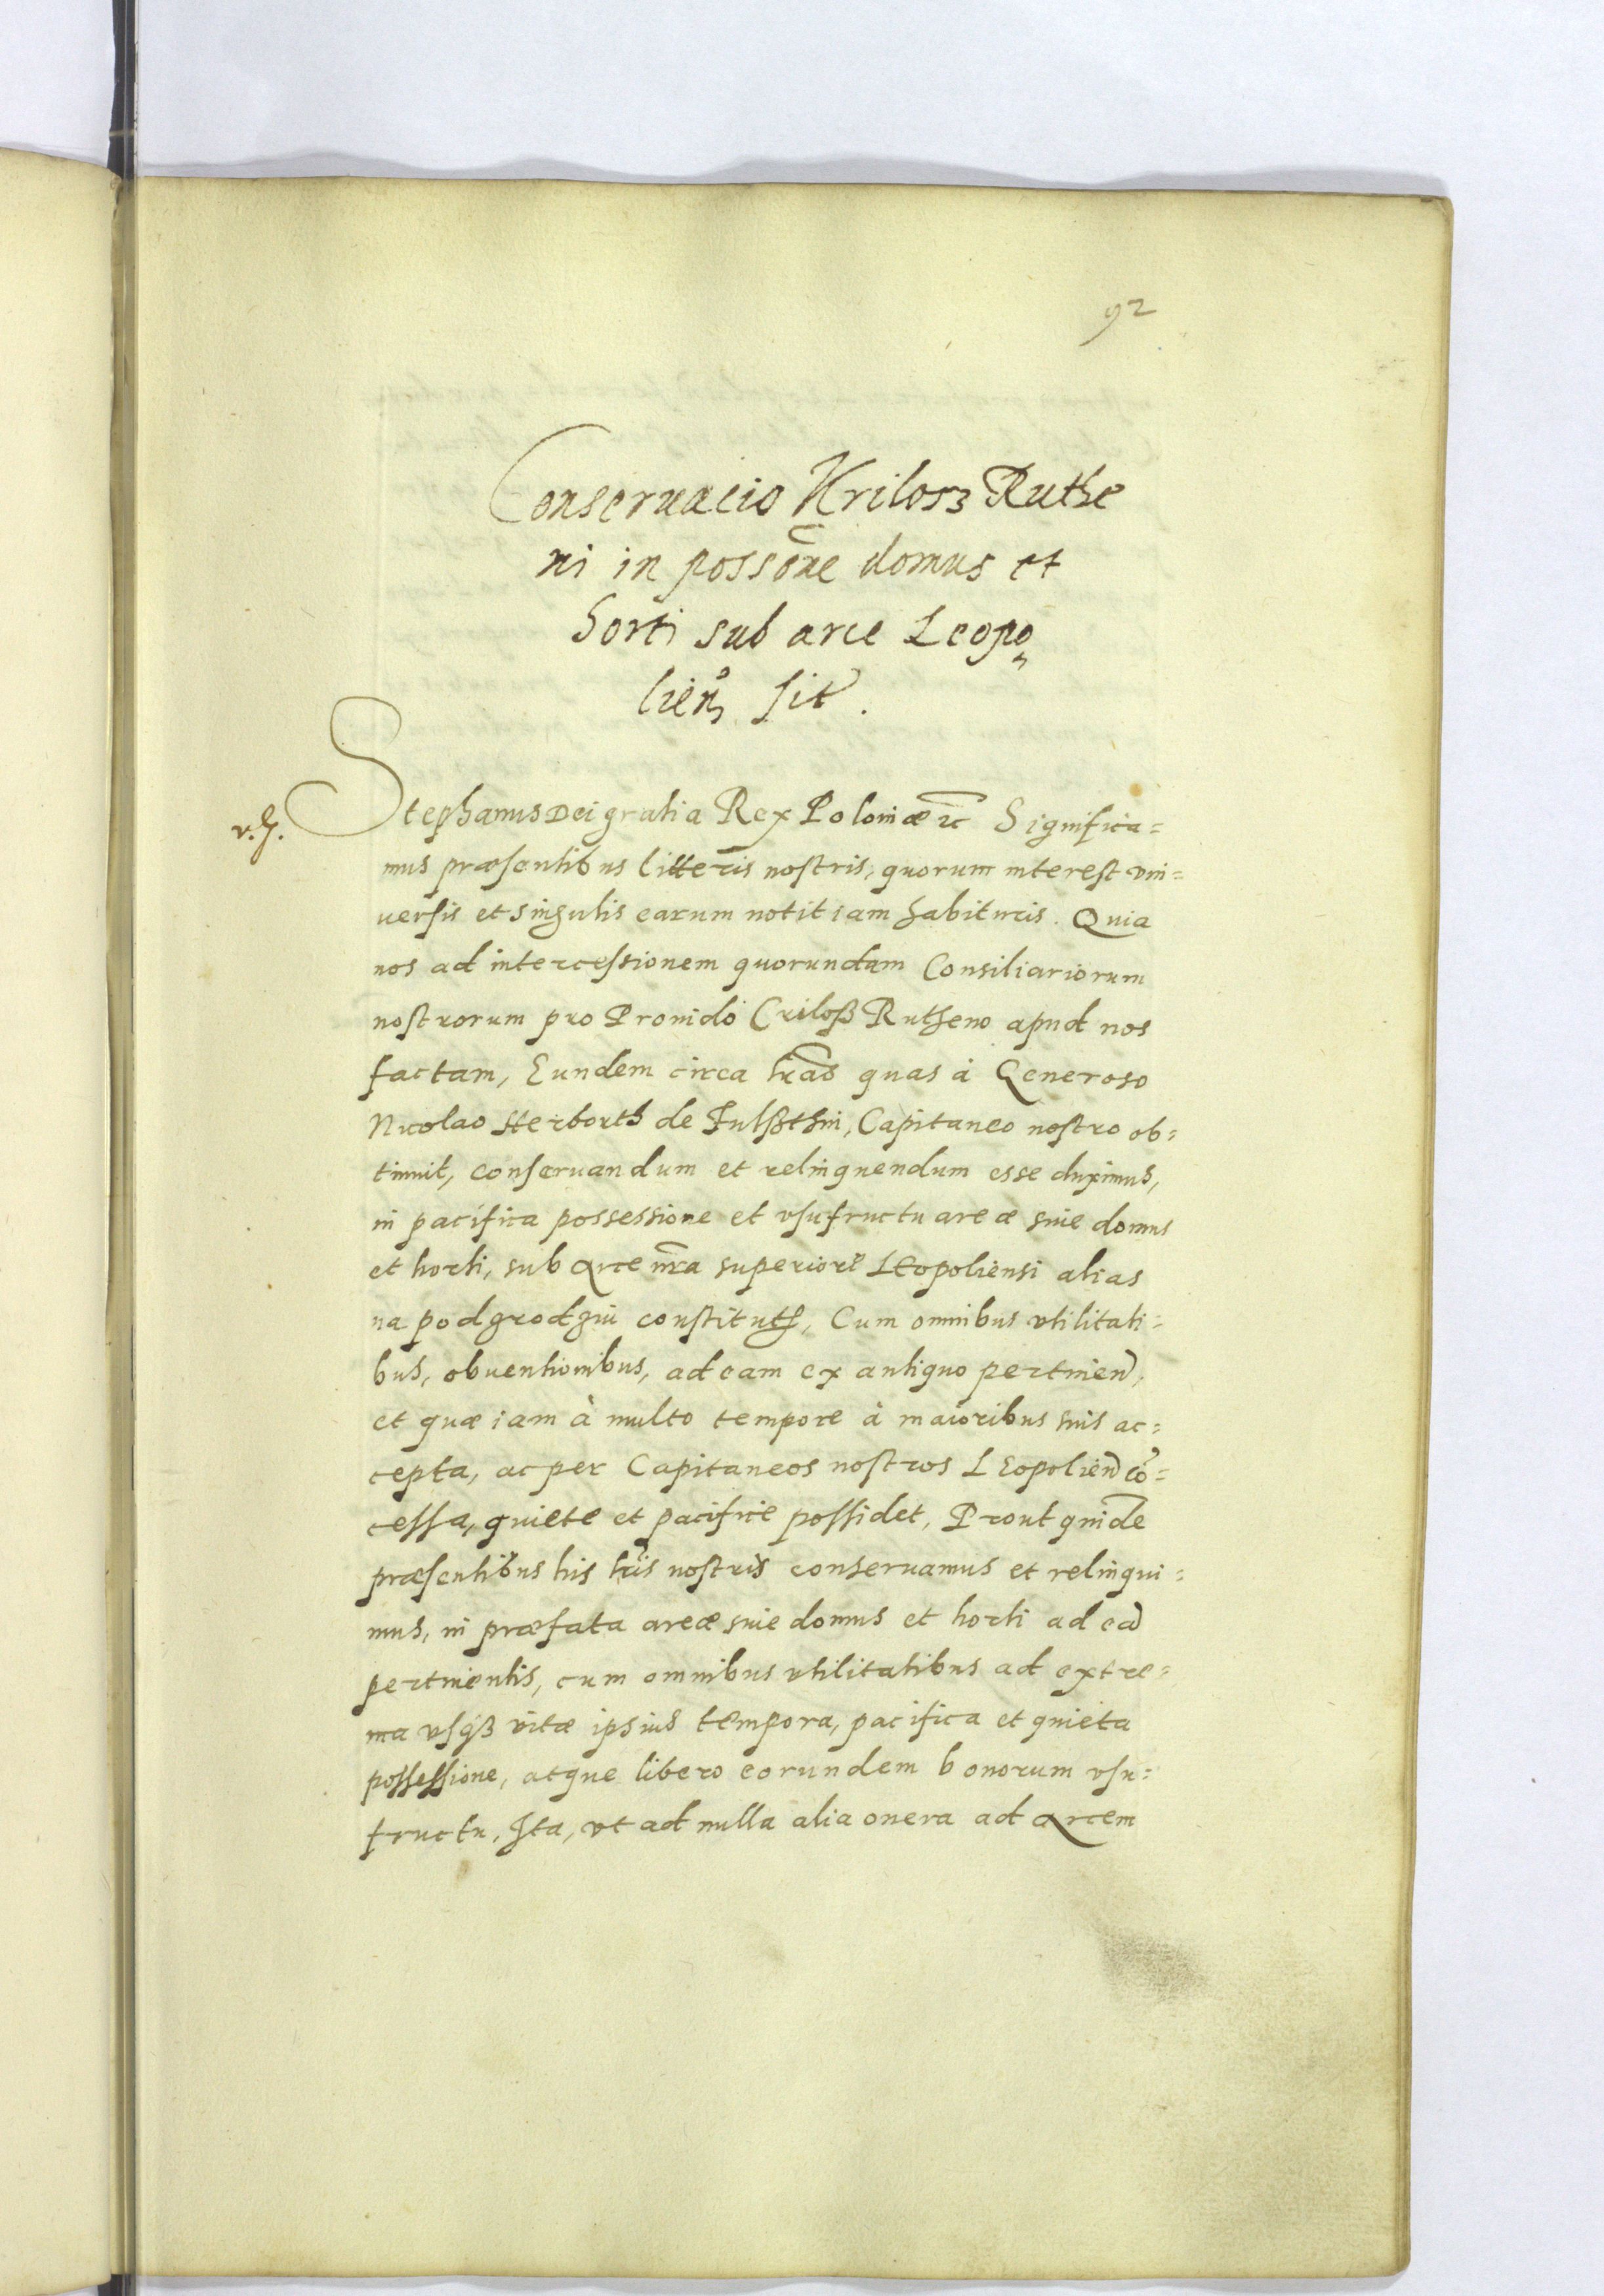 92
Conseruacio Kriłosz Ruthe
ni in possõne domus et
horti sub arce Leopo
lien̄ sit̃.
v. h.
Stephanus Dei gratia Rex Poloniæ etc Significa=
mus præsentibus litteris nostris, quorum interest vni=
uersis et singulis earum notitiam habituris. Quia
nos ad intercessionem quorundam Consiliariorum
nostrorum pro Prouido Criloß Rutheno apud nos
factam, Eundem circa lr̃as quas à Generoso
Nicolao Herborth de Fulßthin, Capitaneo nostro ob=
tinuit, conseruandum et relinquendum esse duximus,
in pacifica possessione et vsufructu areæ siue domus
et horti, sub Arce nr̃a superiore LEopoliensi alias
na podgrodziu constitut, Cum omnibus vtilitati=
bus, obuentionibus, ad eam ex antiquo pertinen̄,
et quæ iam à multo tempore à maioribus suis ac=
cepta, ac per Capitaneos nostros LEopolien̄ cõ=
cessa, quiete et pacifice possidet, Prout quidẽ
præsentibus his lr̃is nostris conseruamus et relinqui=
mus, in præfata areæ siue domus et horti ad eã
pertinentis, cum omnibus vtilitatibus ad extre=
ma vsqꝫ vitæ ipsius tempora, pacifica et quieta
possessione, atque libero eorundem bonorum vsu=
fructu, Ita, vt ad nulla alia onera ad Arcem